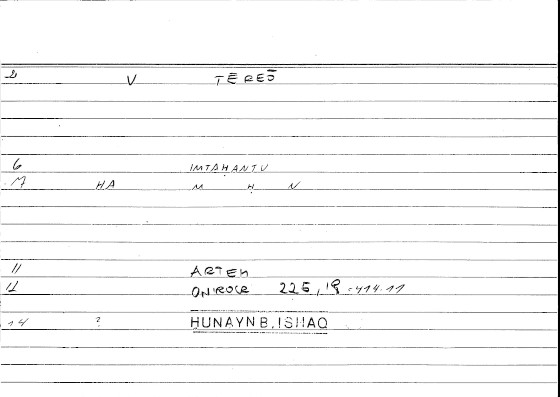 2 V TĒREŌ
6 IMTAḤANTU
7 HA M Ḥ N
11 ARTEM
12 ONIROCR 225,19-414.11
14 ? HUNAYN B. ISHAQ